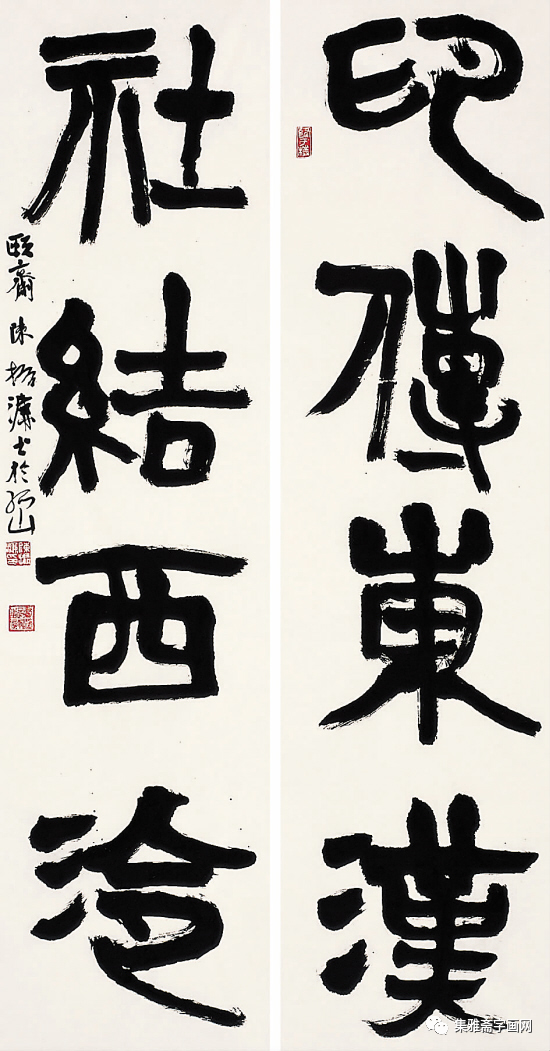 印傳東漢
社結西泠
頤齋陳振濂書於孤山
集雅斋字画网